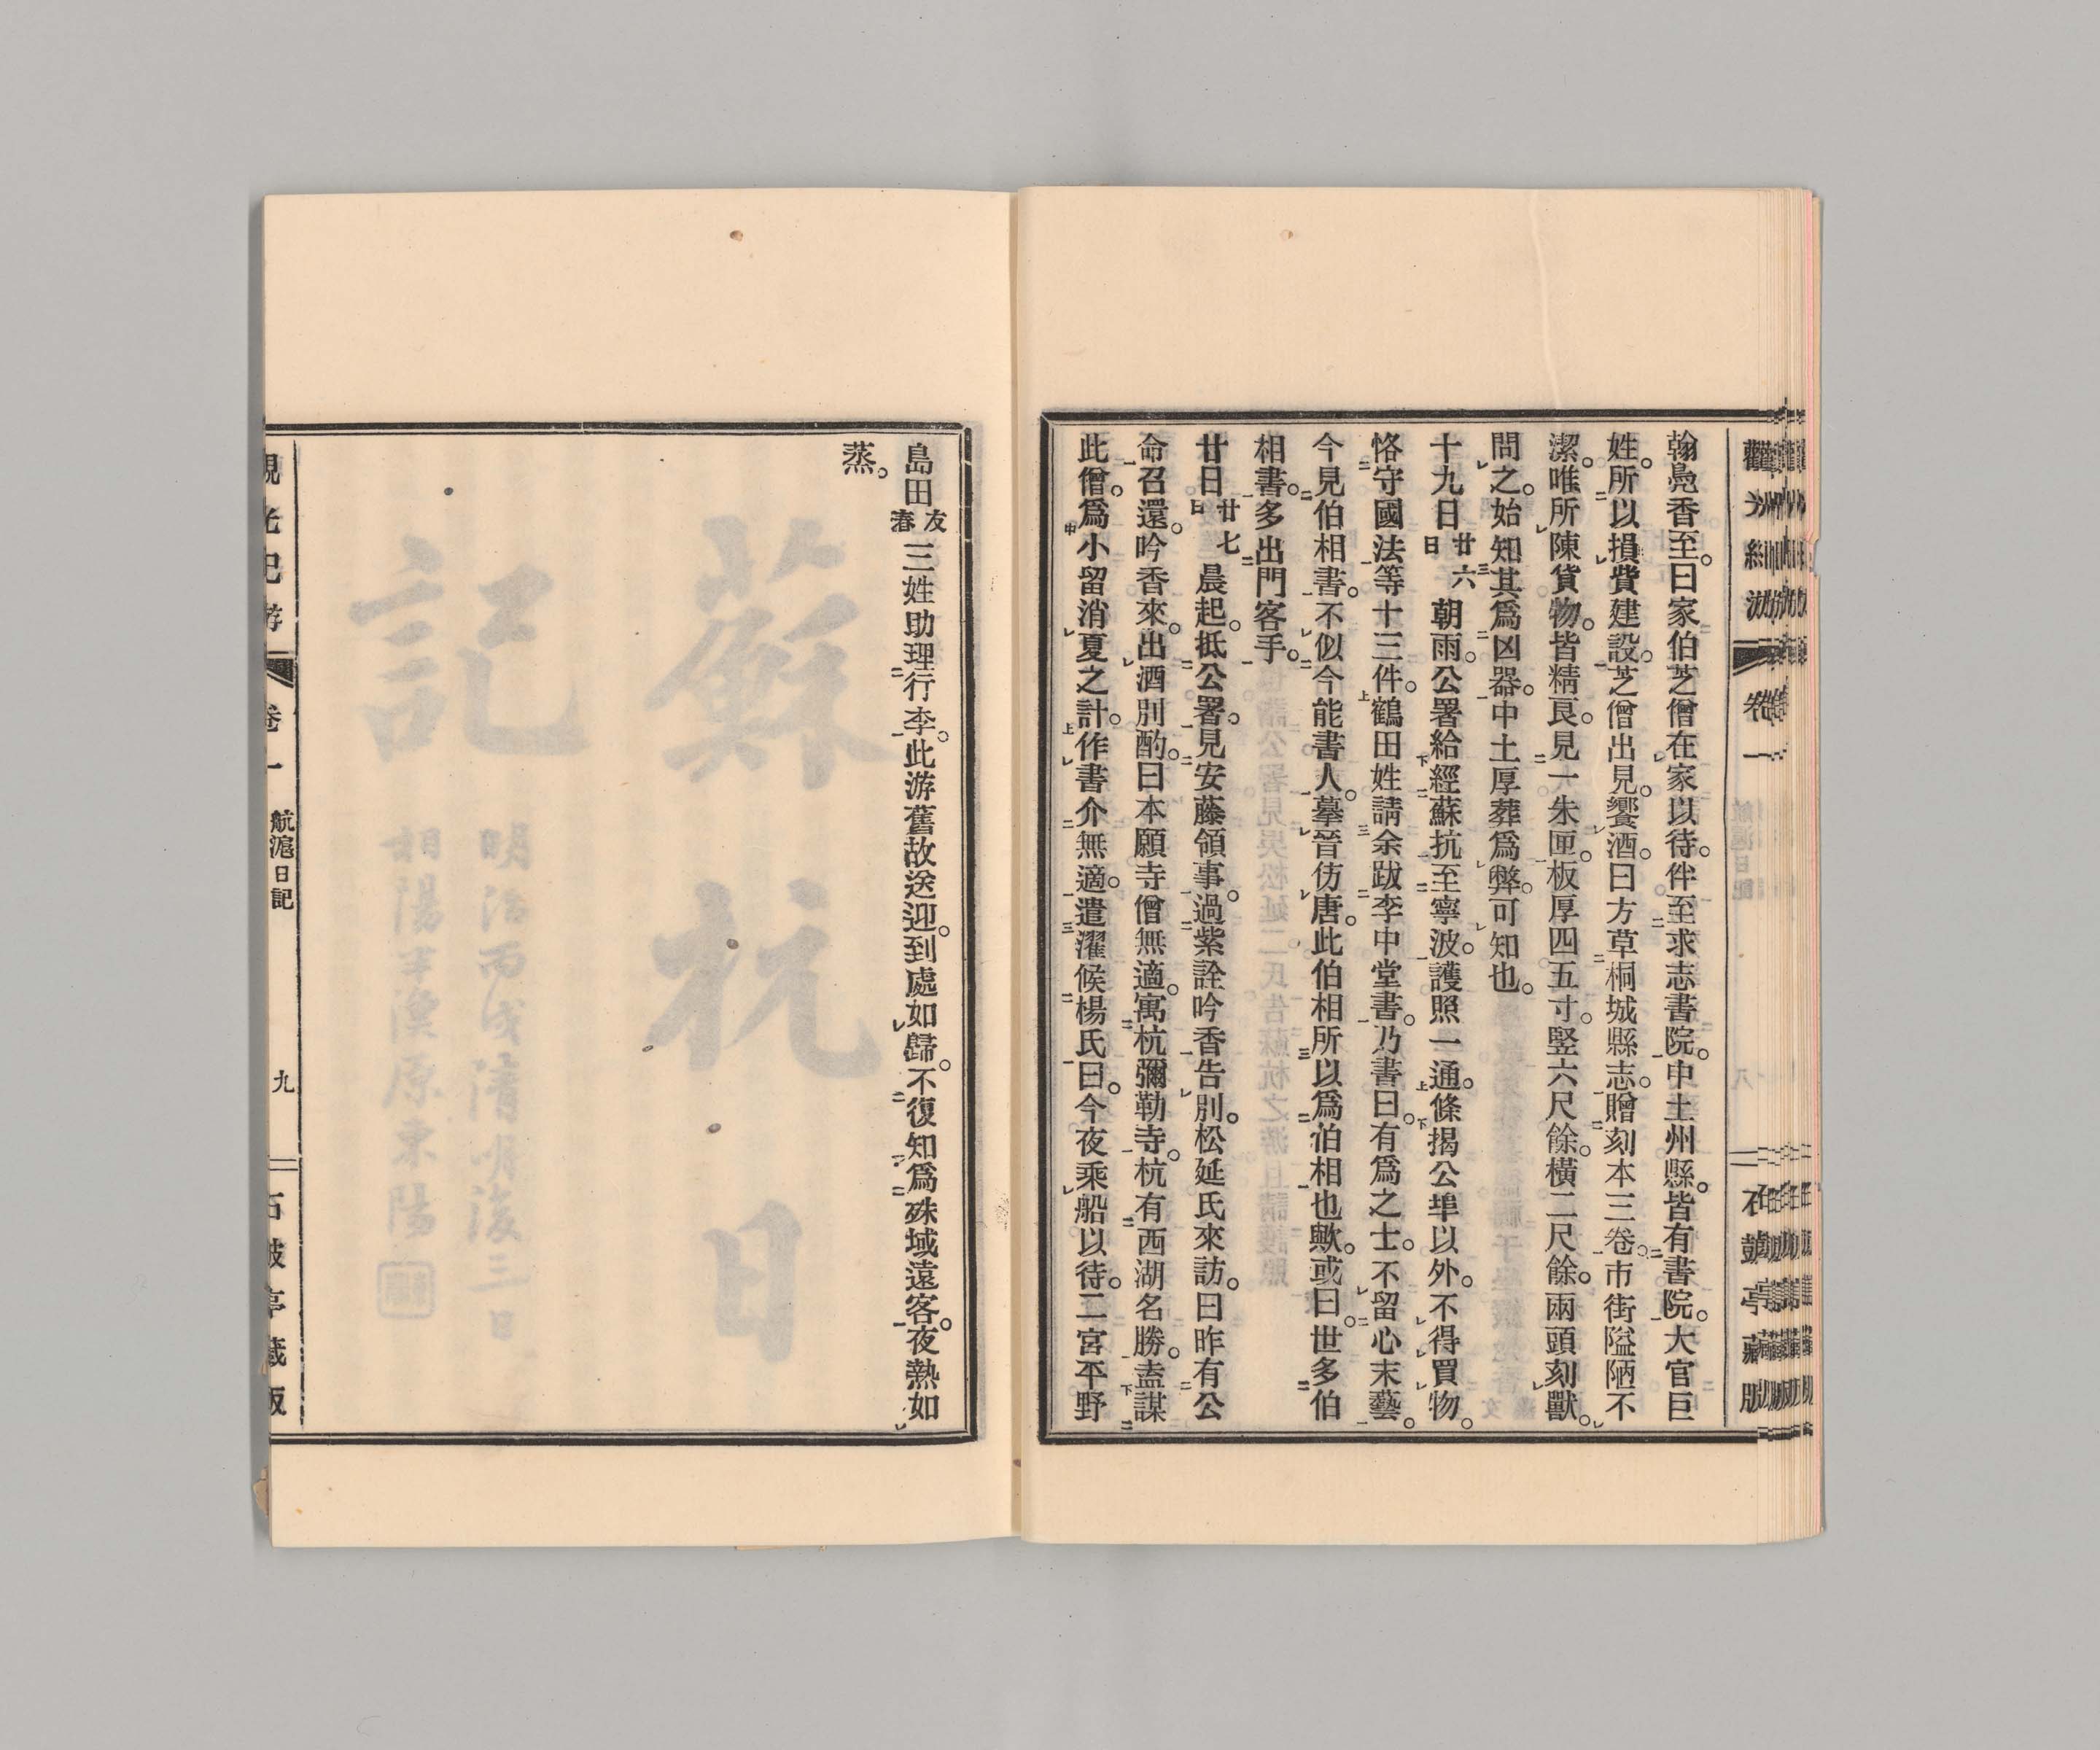 翰堯香至。曰家伯芝僧在家以待。伴至求志書院。中土州縣。皆有書院。大官巨
姓。所以損費建設。芝僧出見。饗酒。曰方草桐城縣志。贈刻本三卷。市街隘陋不
潔。唯所陳貨物。皆精良。見一朱匣。板厚四五寸。竪六尺餘。橫二尺餘。兩頭刻獸。
問之。始知其爲凶器。中土厚葬爲弊。可知也。
十九日廿六日朝雨。公署給經蘇抗至寧波。護照一通。條揭公埠以外。不得買物。
恪守國法等十三件。鶴田姓請余跋李中堂書。乃書曰。有爲之士。不留心末藝。
今見伯相書。不似今能書人。摹晉仿唐。此伯相所以爲伯相也歟。或曰。世多伯
相書。多出門客手。
廿日廿七日晨起。抵公署。見安藤領事。過紫詮吟香告別。松延氏來訪。曰昨有公
命召還。吟香來。出酒別酌。曰本願寺僧無適。寓杭彌勒寺。杭有西湖名勝。盍謀
此僧。爲小留消夏之計。作書介無適。遣濯候楊氏。曰。今夜乘船以待。二宮平野
島田友春三姓助理行李。此游舊故送迎。到處如歸。不復知爲殊域遠客。夜熱如
蒸。
卷一
航滬日記
九